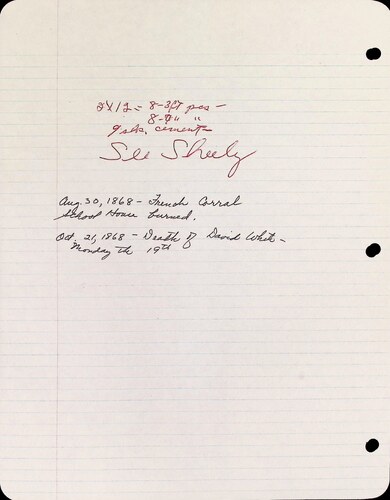 2X12 = 8-3ft pcs -
8- " "
9 sks. cement -
See Sheely
Aug. 30, 1868 - French Corral
School House burned.
Oct. 21, 1868 - Death of David Whit -
Monday the 19th